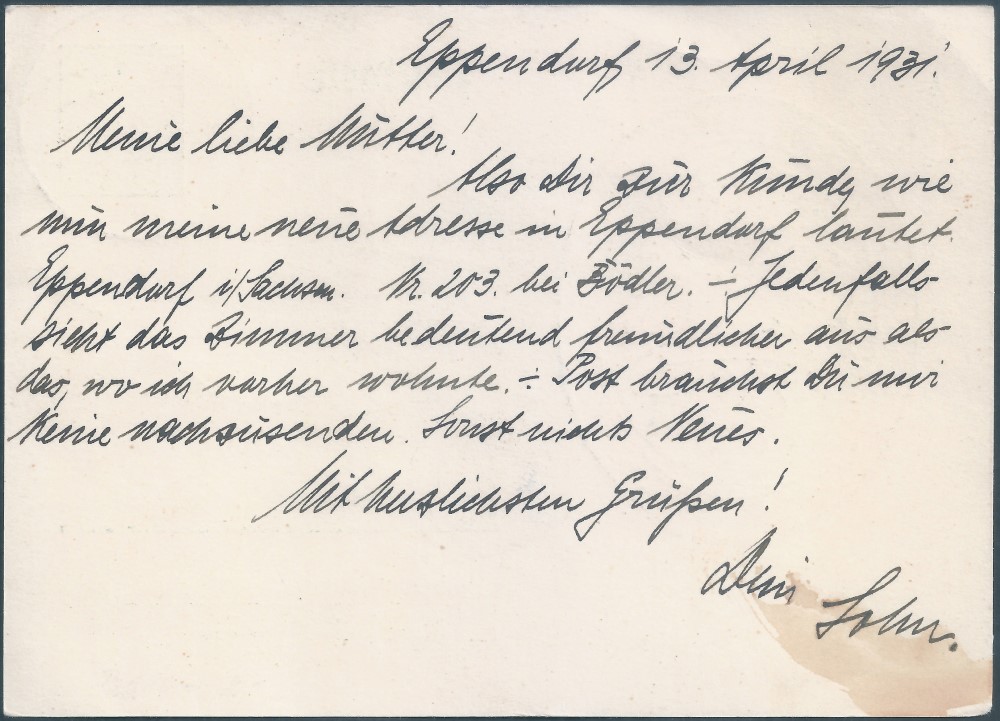 Eppendorf 13. April 1931.
Meine liebe Mutter!
Also Dir zur Kunde, wie
nun meine neue Adresse in Eppendorf lautet.
Eppendorf i/Sachsen. Nr. 203. bei Bödler. ÷ Jedenfalls
sieht das Zimmer bedeutend freundlicher aus als
das, wo ich vorher wohnte. ÷ Post brauchst Du mir
keine nachzusenden. Sonst nichts Neues.
Mit herzlichsten Grüßen!
Dein Sohn.